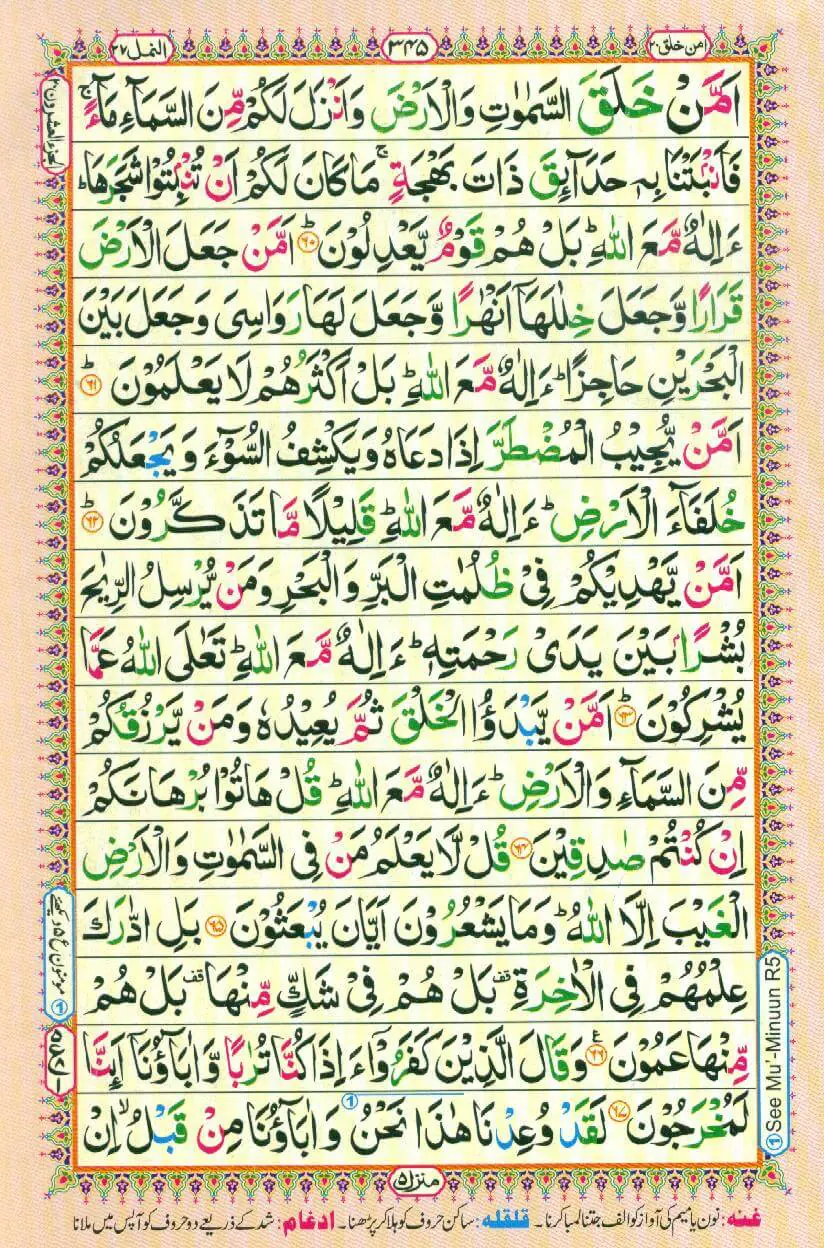 امن خلق ۲۰
۳۴۵
النمل ۲۷
الجزء العشرون ۲۰
اَمَّنْ خَلَقَ السَّمٰوٰتِ وَالْاَرْضَ وَاَنْزَلَ لَكُمْ مِّنَ السَّمَآءِ مَآءً ۚ
فَاَنْۢبَتْنَا بِهٖ حَدَآئِقَ ذَاتَ بَهْجَةٍ ۚ مَا كَانَ لَكُمْ اَنْ تُنْۢبِتُوْا شَجَرَهَا ؕ
ءَاِلٰهٌ مَّعَ اللّٰهِ ؕ بَلْ هُمْ قَوْمٌ يَّعْدِلُوْنَ ؕ ﴿۶۰﴾ اَمَّنْ جَعَلَ الْاَرْضَ
قَرَارًا وَّجَعَلَ خِلٰلَهَاۤ اَنْهٰرًا وَّجَعَلَ لَهَا رَوَاسِيَ وَجَعَلَ بَيْنَ
الْبَحْرَيْنِ حَاجِزًا ؕ ءَاِلٰهٌ مَّعَ اللّٰهِ ؕ بَلْ اَكْثَرُهُمْ لَا يَعْلَمُوْنَ ؕ ﴿۶۱﴾
اَمَّنْ يُّجِيْبُ الْمُضْطَرَّ اِذَا دَعَاهُ وَيَكْشِفُ السُّوْٓءَ وَيَجْعَلُكُمْ
خُلَفَآءَ الْاَرْضِ ؕ ءَاِلٰهٌ مَّعَ اللّٰهِ ؕ قَلِيْلًا مَّا تَذَكَّرُوْنَ ؕ ﴿۶۲﴾
اَمَّنْ يَّهْدِيْكُمْ فِيْ ظُلُمٰتِ الْبَرِّ وَالْبَحْرِ وَمَنْ يُّرْسِلُ الرِّيٰحَ
بُشْرًاۢ بَيْنَ يَدَيْ رَحْمَتِهٖ ؕ ءَاِلٰهٌ مَّعَ اللّٰهِ ؕ تَعٰلَى اللّٰهُ عَمَّا
يُشْرِكُوْنَ ؕ ﴿۶۳﴾ اَمَّنْ يَّبْدَؤُا الْخَلْقَ ثُمَّ يُعِيْدُهٗ وَمَنْ يَّرْزُقُكُمْ
مِّنَ السَّمَآءِ وَالْاَرْضِ ؕ ءَاِلٰهٌ مَّعَ اللّٰهِ ؕ قُلْ هَاتُوْا بُرْهَانَكُمْ
اِنْ كُنْتُمْ صٰدِقِيْنَ ﴿۶۴﴾ قُلْ لَّا يَعْلَمُ مَنْ فِي السَّمٰوٰتِ وَالْاَرْضِ
الْغَيْبَ اِلَّا اللّٰهُ ؕ وَمَا يَشْعُرُوْنَ اَيَّانَ يُبْعَثُوْنَ ﴿۶۵﴾ بَلِ ادّٰرَكَ
عِلْمُهُمْ فِي الْاٰخِرَةِ قف بَلْ هُمْ فِيْ شَكٍّ مِّنْهَا قف بَلْ هُمْ
مِّنْهَا عَمُوْنَ ﴿۶۶﴾ ع وَقَالَ الَّذِيْنَ كَفَرُوْۤا ءَاِذَا كُنَّا تُرٰبًا وَّاٰبَآؤُنَاۤ اَئِنَّا
لَمُخْرَجُوْنَ ﴿۶۷﴾ لَقَدْ وُعِدْنَا هٰذَا نَحْنُ وَاٰبَآؤُنَا مِنْ قَبْلُ ۙ اِنْ
① See Mu'-Minuun R5
منزل ۵
غنه: نون یا میم کی آواز کو الف جتنا لمبا کرنا۔ قلقله: ساکن حروف کو ہلا کر پڑھنا۔ ادغام: شد کے ذریعے دو حروف کو آپس میں ملانا